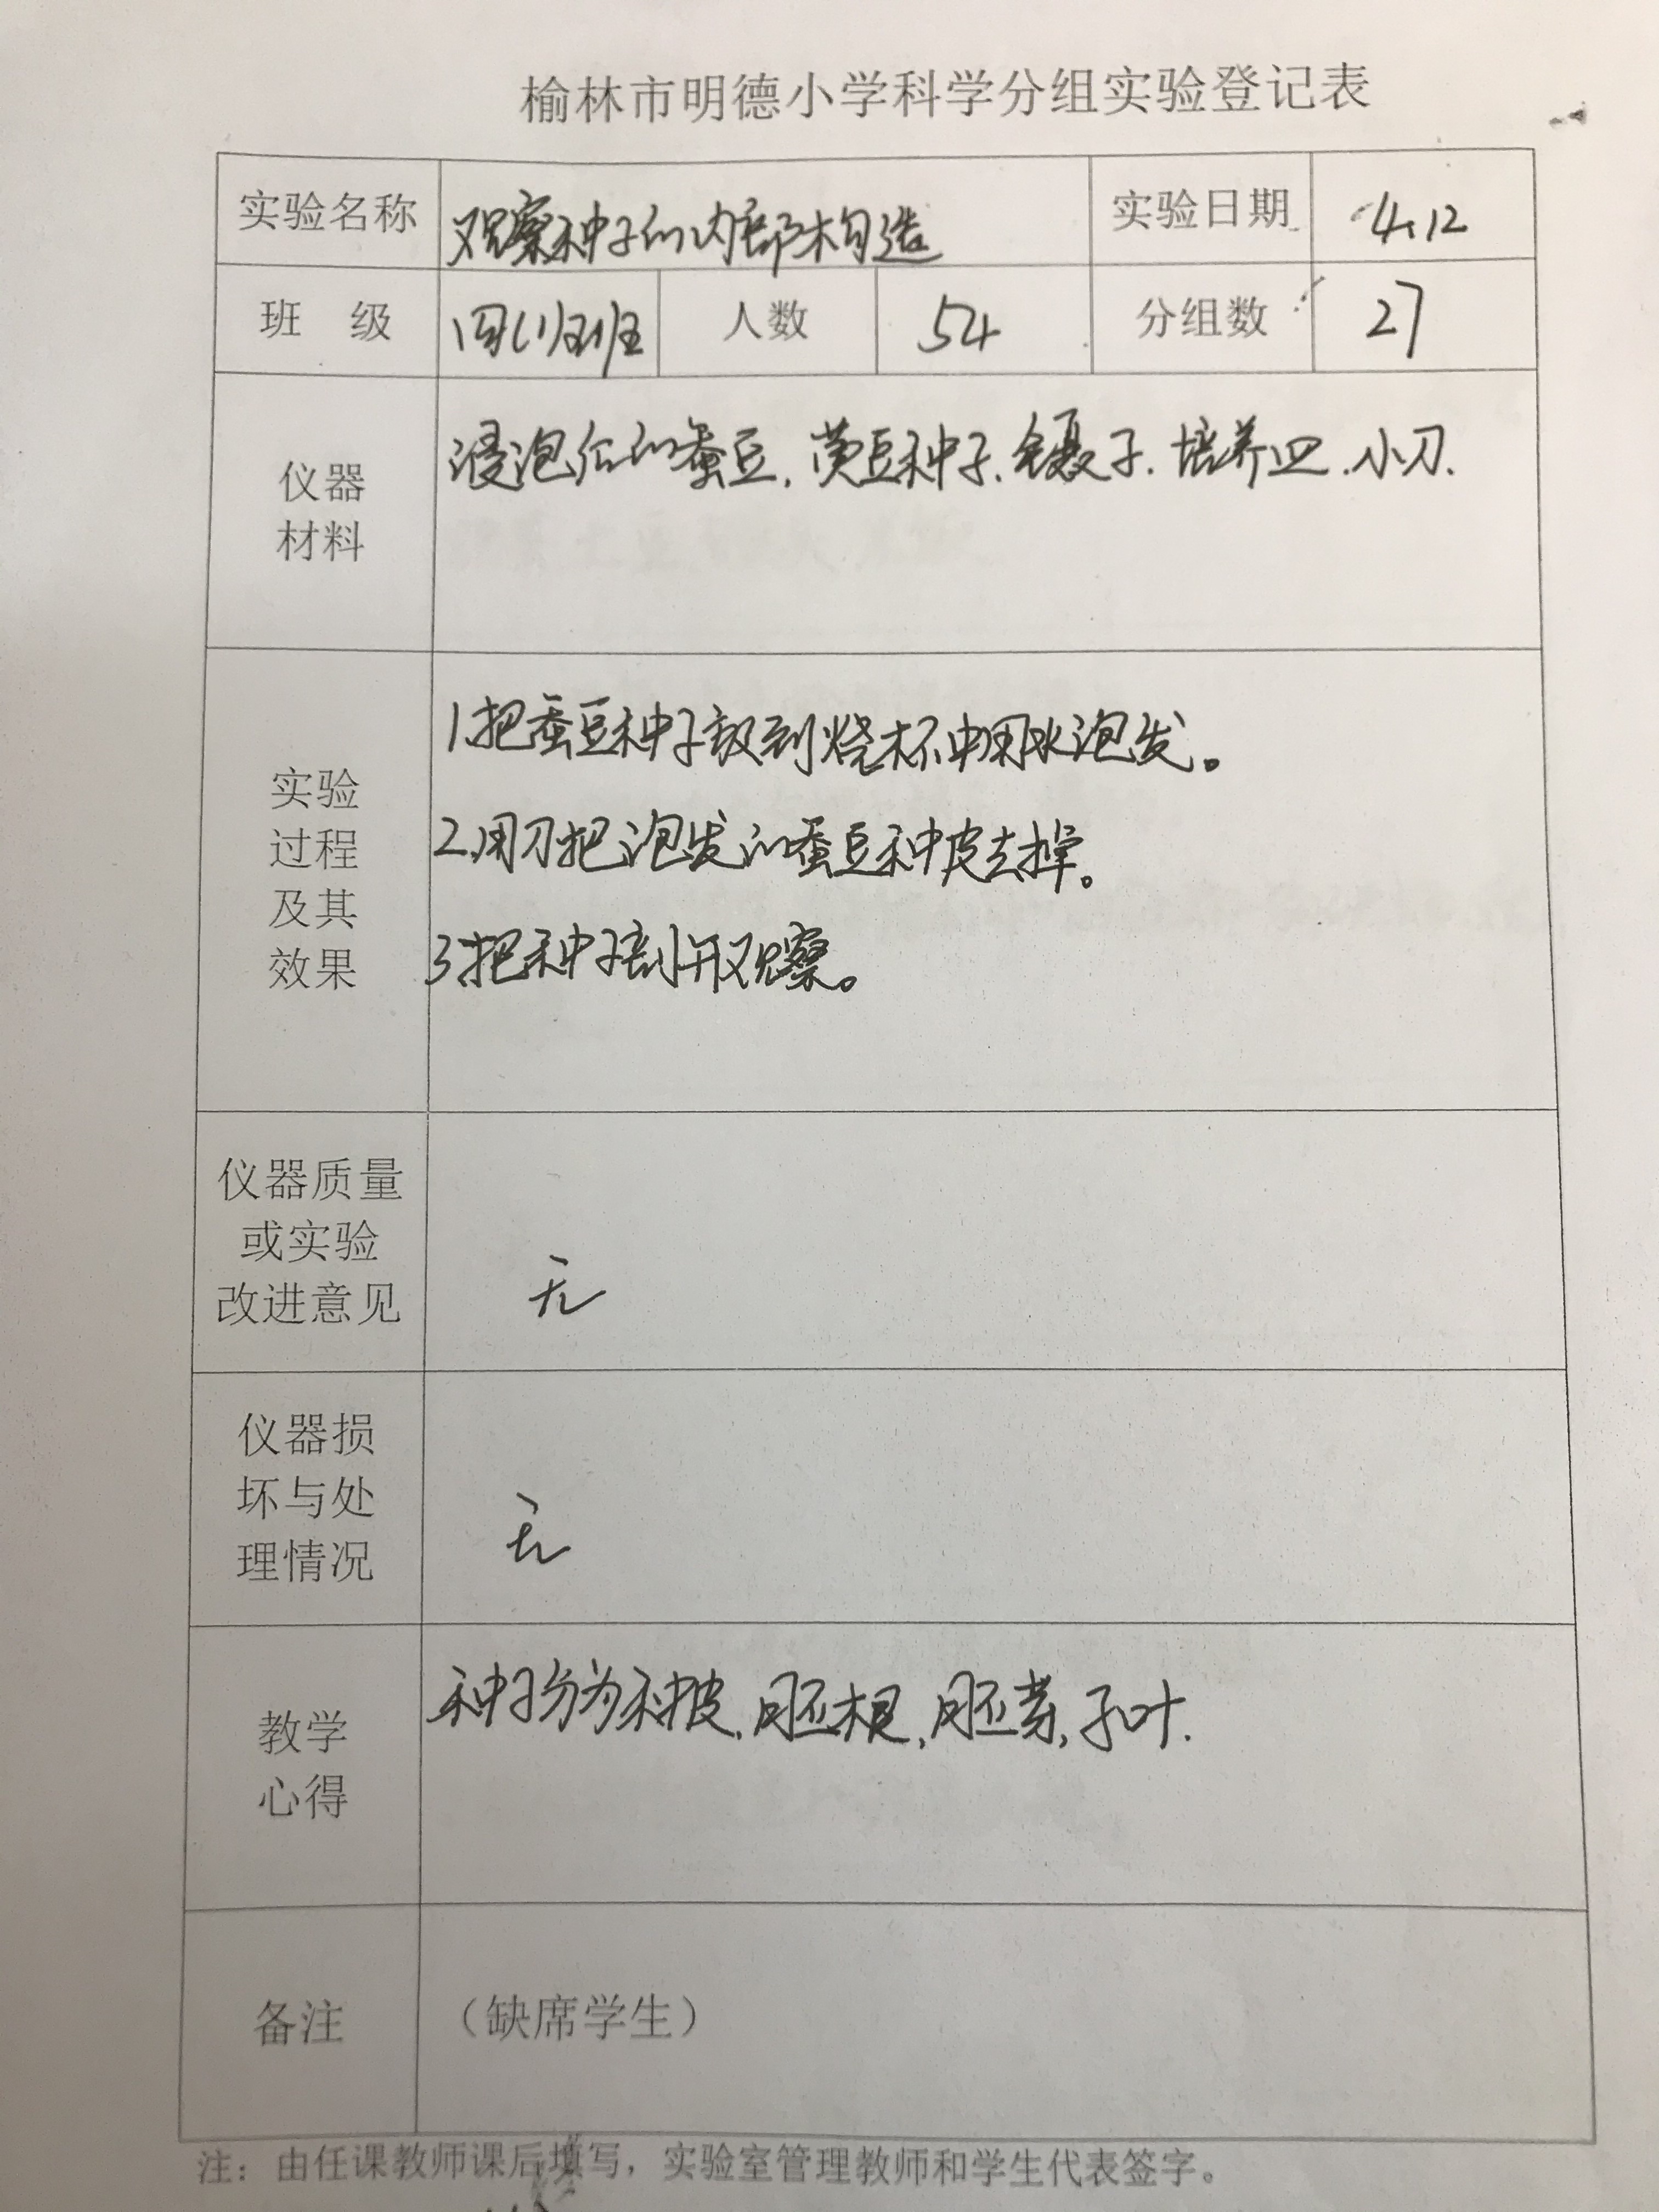 榆林市明德小学科学分组实验登记表
实验名称 观察种子的内部构造 实验日期 4.12
班 级 四(1)班 人数 54 分组数 27
仪器
材料
浸泡后的蚕豆、黄豆种子、镊子、培养皿、小刀.
实验
过程
及其
效果
1.把蚕豆种子放到烧杯中用水泡发。
2.用刀把泡发的蚕豆种皮去掉。
3.把种子剖开观察。
仪器质量
或实验
改进意见
无
仪器损
坏与处
理情况
无
教学
心得
种子分为种皮、胚根、胚芽、子叶.
备注 （缺席学生）
注：由任课教师课后填写，实验室管理教师和学生代表签字。